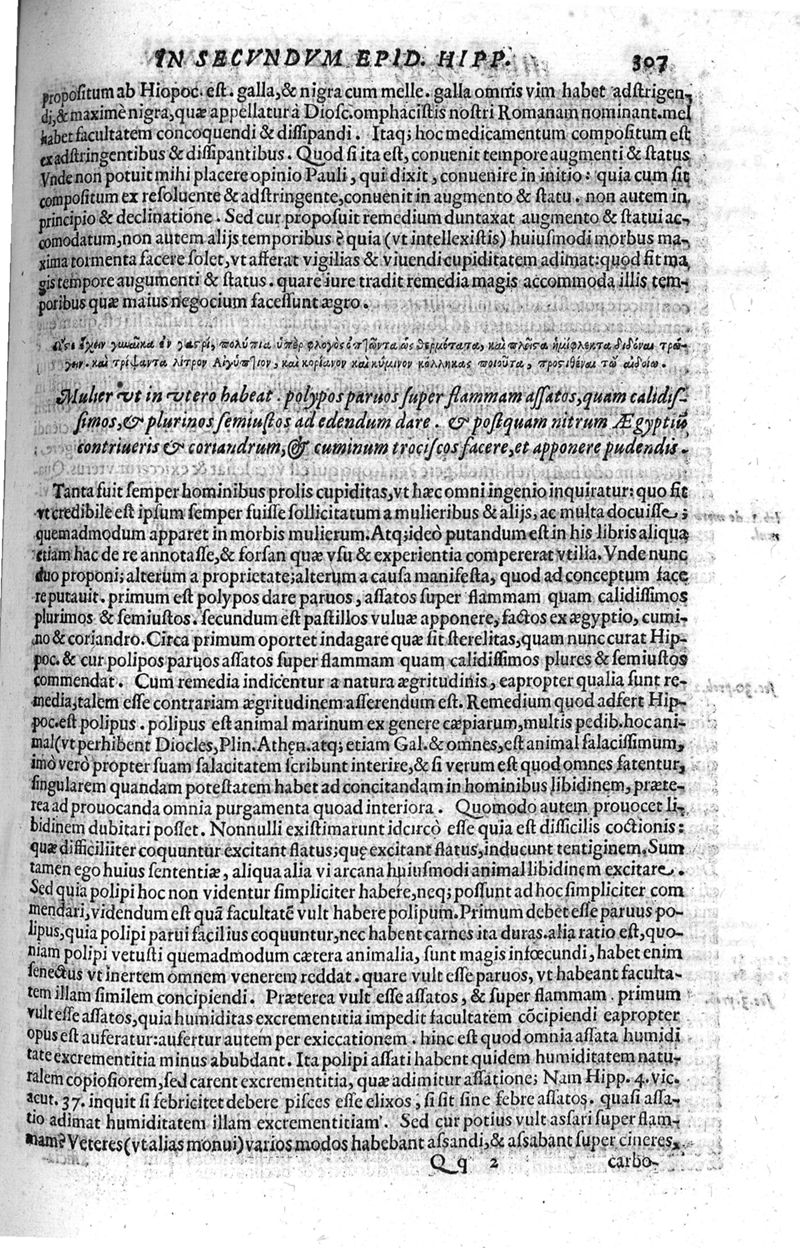 IN SECVNDVM EPID. HIPP. 307
propositum ab Hiopoc. est. galla,& nigra cum melle. galla omnis vim habet adstrigen-
di,& maximè nigra, quæ appellatur à Diosc. omphacistis nostri Romanam nominant. mel
habet facultatem concoquendi & dissipandi. Itaq; hoc medicamentum compositum est
ex adstringentibus & dissipantibus. Quod si ita est, conuenit tempore augmenti & status
Vnde non potuit mihi placere opinio Pauli, qui dixit, conuenire in initio: quia cum sit
compositum ex resoluente & adstringente, conuenit in augmento & statu. non autem in
principio & declinatione. Sed cur proposuit remedium duntaxat augmento & statui ac-
comodatum, non autem alijs temporibus? quia (vt intellexistis) huiusmodi morbus ma-
xima tormenta facere solet, vt afferat vigilias & viuendi cupiditatem adimat: quod fit ma
gis tempore augumenti & status. quare iure tradit remedia magis accommoda illis tem-
poribus quæ maius negocium facessunt ægro.
Ὥστε ἔχειν γυναῖκα ἐν γαστρὶ, πολύπια ὑπὲρ φλογὸς ὀπτῶντα ὡς θερμότατα, καὶ πλεῖστα ἡμίφλεκτα διδόναι τρώ-
γειν. καὶ τρίψαντα λίτρον Αἰγύπτιον, καὶ κορίανον καὶ κύμινον κόλληκας ποιοῦτα, προστιθέναι τῷ αἰδοίῳ.
Mulier vt in vtero habeat. polypos paruos super flammam assatos, quam calidis-
simos, & plurinos semiustos ad edendum dare. & postquam nitrum Ægyptiũ
contriueris & coriandrum, & cuminum trociscos facere, et apponere pudendis.
Tanta fuit semper hominibus prolis cupiditas, vt hæc omni ingenio inquiratur: quo fit
vt credibile est ipsum semper fuisse sollicitatum a mulieribus & alijs, ac multa docuisse;
quemadmodum apparet in morbis mulierum. Atq; ideò putandum est in his libris aliqua
etiam hac de re annotasse,& forsan quæ vsu & experientia compererat vtilia. Vnde nunc
duo proponi; alterum a proprietate; alterum a causa manifesta, quod ad conceptum face
re putauit. primum est polypos dare paruos, assatos super flammam quam calidissimos
plurimos & semiustos. secundum est pastillos vuluæ apponere, factos ex ægyptio, cumi-
no & coriandro. Circa primum oportet indagare quæ sit sterelitas, quam nunc curat Hip-
poc. & cur polipos paruos assatos super flammam quam calidissimos plures & semiustos
commendat. Cum remedia indicentur a natura ægritudinis, eapropter qualia sunt re-
media, talem esse contrariam ægritudinem asserendum est. Remedium quod adfert Hip-
poc. est polipus. polipus est animal marinum ex genere cæpiarum, multis pedib. hoc ani-
mal (vt perhibent Diocles, Plin. Athęn. atq; etiam Gal. & omnes, est animal salacissimum,
imò verò propter suam salacitatem scribunt interire, & si verum est quod omnes fatentur,
singularem quandam potestatem habet ad concitandam in hominibus libidinem, præte-
rea ad prouocanda omnia purgamenta quoad interiora. Quomodo autem prouocet li-
bidinem dubitari posset. Nonnulli existimarunt idcircò esse quia est difficilis coctionis:
quæ difficiliter coquuntur excitant flatus; quę excitant flatus, inducunt tentiginem. Sum
tamen ego huius sententiæ, aliqua alia vi arcana huiusmodi animal libidinem excitare.
Sed quia polipi hoc non videntur simpliciter habere, neq; possunt ad hoc simpliciter com
mendari, videndum est quã facultatẽ vult habere polipum. Primum debet esse paruus po-
lipus, quia polipi parui facilius coquuntur, nec habent carnes ita duras. alia ratio est, quo-
niam polipi vetusti quemadmodum cætera animalia, sunt magis infœcundi, habet enim
senectus vt inertem omnem venerem reddat. quare vult esse paruos, vt habeant faculta-
tem illam similem concipiendi. Præterea vult esse assatos, & super flammam. primum
vult esse assatos, quia humiditas excrementitia impedit facultatem cõcipiendi eapropter
opus est auferatur: aufertur autem per exiccationem. hinc est quod omnia assata humidi
tate excrementitia minus abubdant. Ita polipi assati habent quidem humiditatem natu-
ralem copiosiorem, sed carent excrementitia, quæ adimitur assatione; Nam Hipp. 4. vic.
acut. 37. inquit si febricitet debere pisces esse elixos, si sit sine febre assatos. quasi assa-
tio adimat humiditatem illam excrementitiam. Sed cur potius vult assari super flam-
mam? Veteres (vt alias monui) varios modos habebant assandi, & assabant super cineres,
Qq 2 carbo-